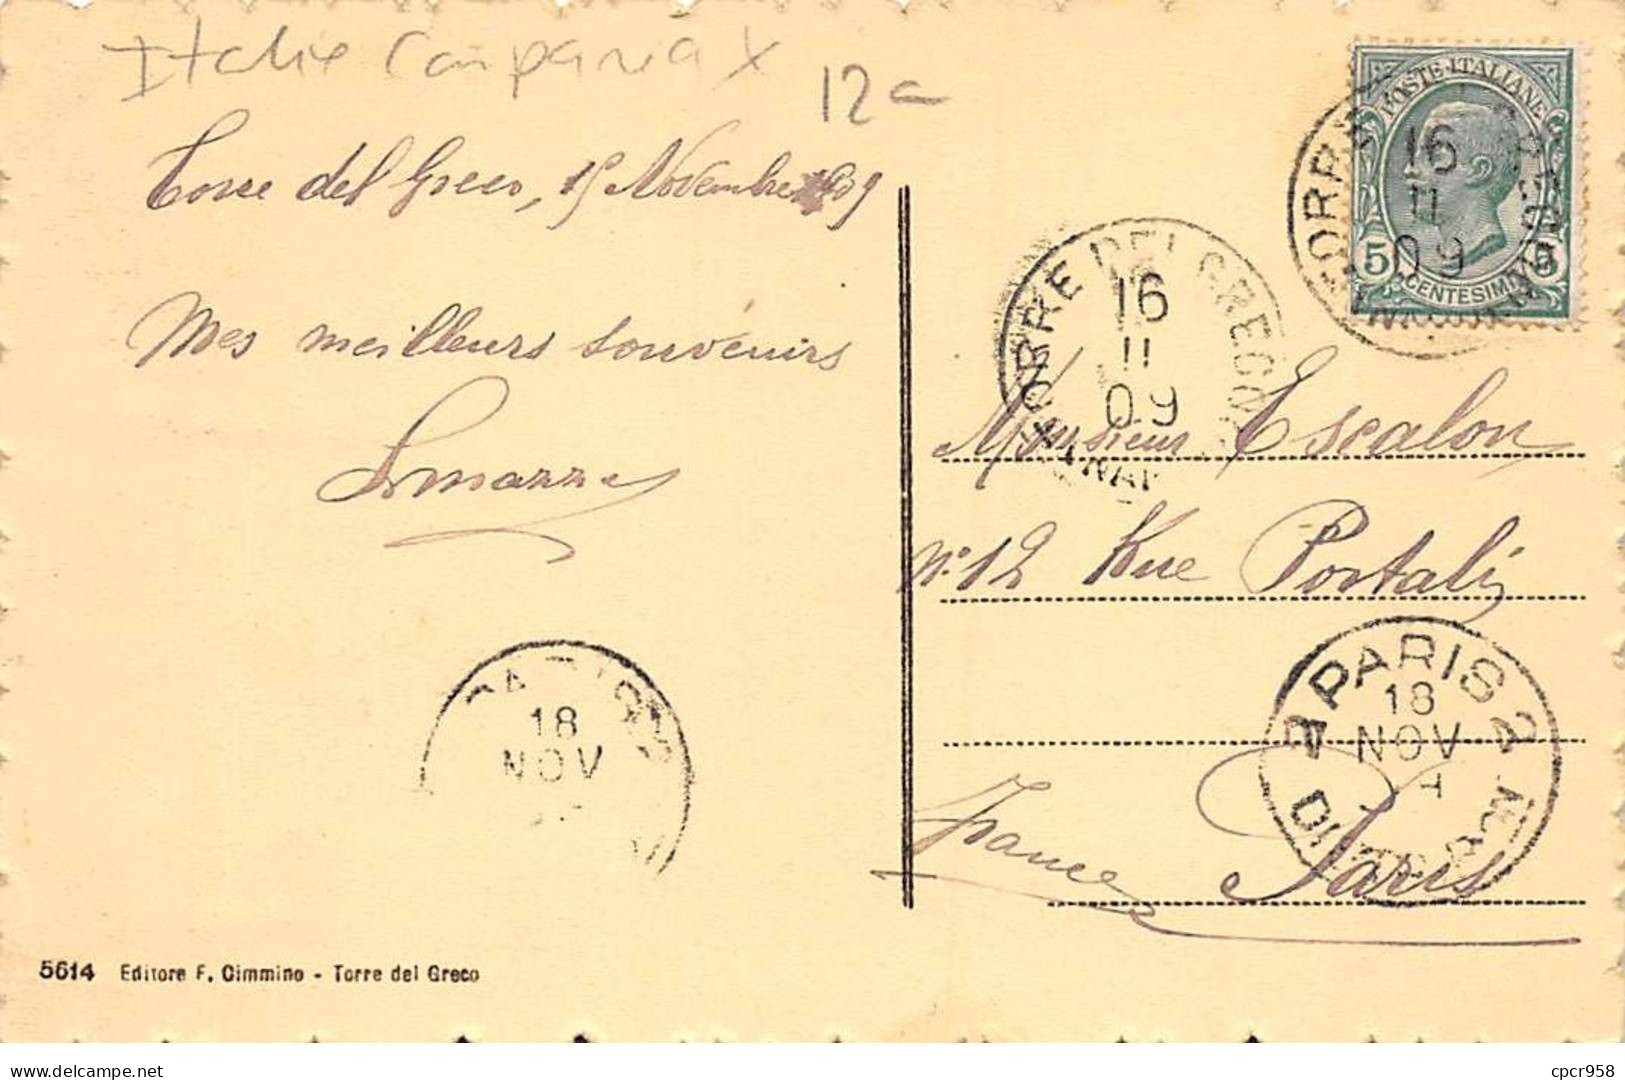 Italie Campania X
12€
Torre del Greco, 15 Novembre 1909
Mes meilleurs souvenirs
POSTE ITALIANE
5 5
CENTESIMI
16
11
09
TORRE DEL GRECO
16
11
09
Monsieur Escalon
N° 12 Rue Portalis
Paris
France
PARIS 2
18
NOV
DISTRIBUTION
18
NOV
5614 Editore F. Cimmino - Torre del Greco
delcampe.net
cpcr958